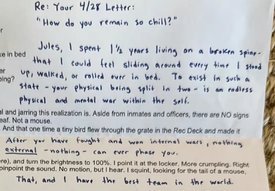 Re: Your 4/28 Letter:
"How do you remain so chill?"
ke in bed
Jules, I spent 1½ years living on a broken spine-
that I could feel sliding around every time I stood
up, walked, or rolled over in bed. To exist in such a
state - your physical being split in two - is an endless
physical and mental war within the self.
al and jarring this realization is. Aside from inmates and officers, there are NO signs
eaf. Not a mouse.
And that one time a tiny bird flew through the grate in the Rec Deck and made it
After you have fought and won internal wars, nothing
external - nothing - can ever phase you.
ere), and turn the brightness to 100%. I point it at the locker. More crumpling. Right
pinpoint the sound. No motion, but I hear. I squint, looking for the tail of a mouse.
That, and I have the best team in the world.